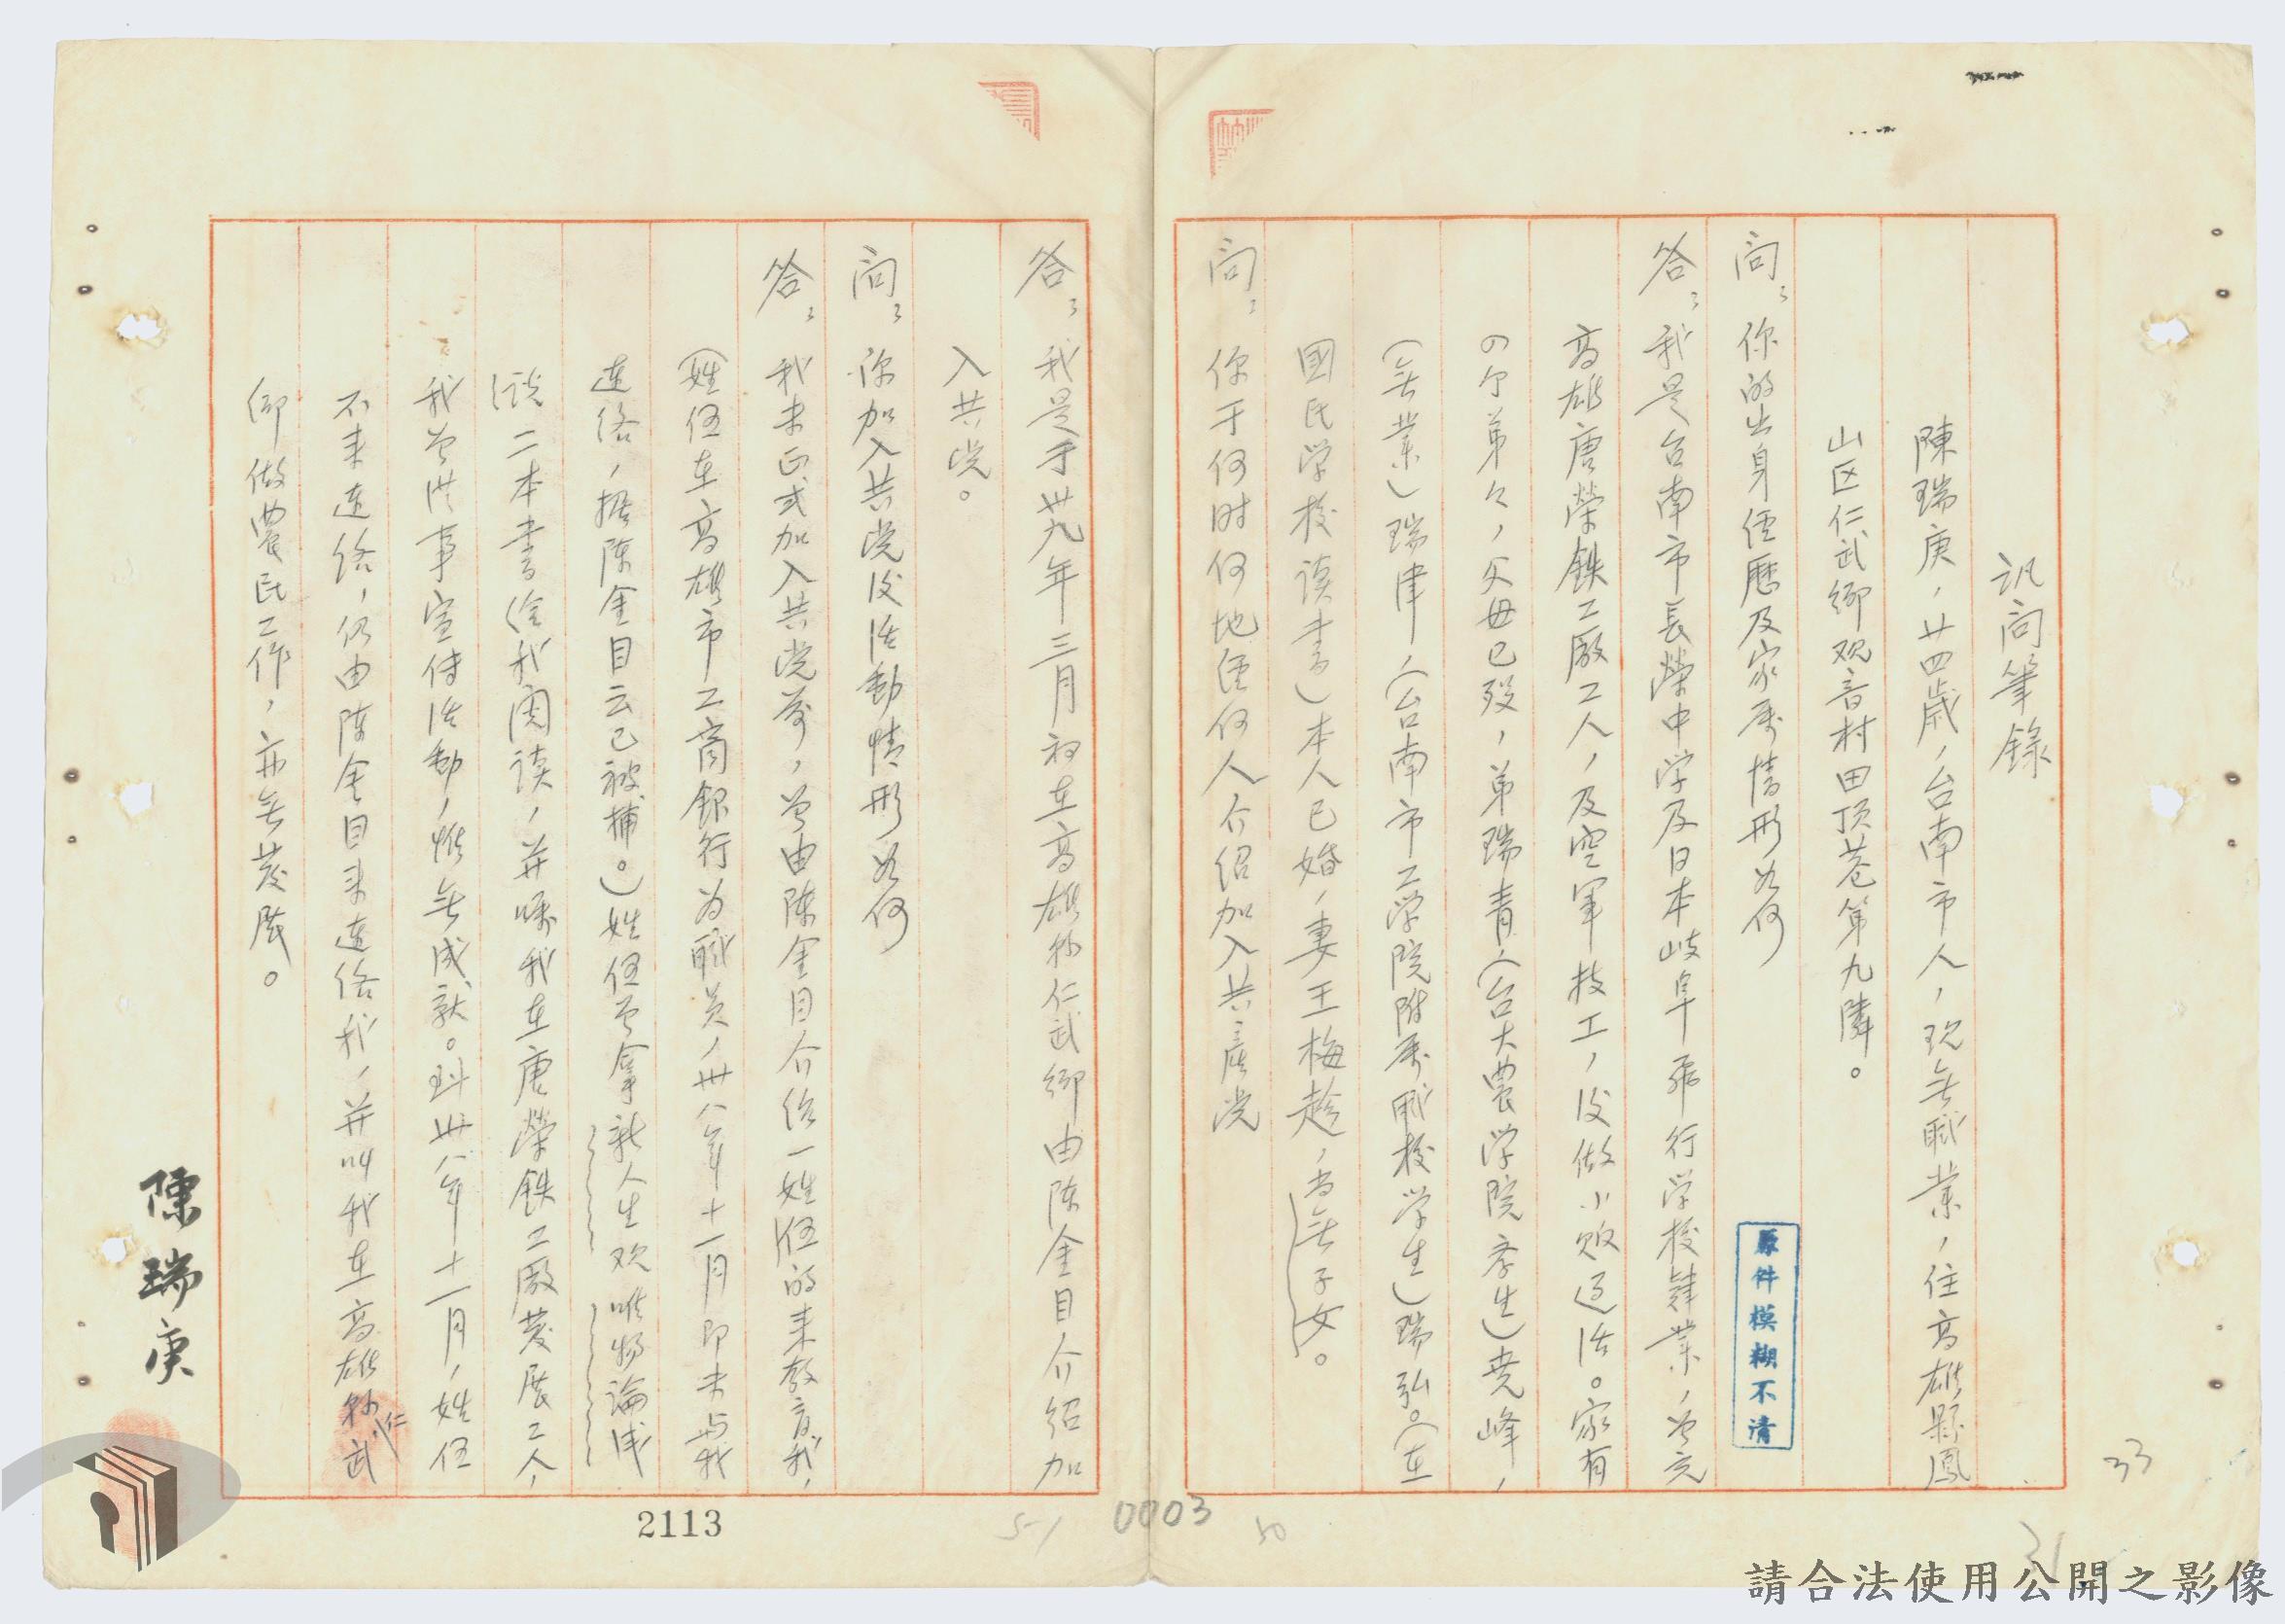 訊问筆錄
陳瑞庚，廿四歲，台南市人，現無职業，住高雄縣鳳
山区仁武鄉观音村田顶巷第九隣。
问：你的出身径歷及家屬情形如何
答：我是台南市長榮中学及日本岐阜飛行学校肄業，曾充
高雄唐榮鉄工廠工人，及空軍技工，后做小贩过活。家有
四个弟々，父母已歿，弟瑞青（台大農学院学生）尭峰，
（無業）瑞津，（台南市工学院附屬职校学生）瑞弘。（在
國民学校读書）本人已婚，妻王梅趁，尚無子女。
问：你于何时何地径何人介绍加入共產党
答：我是于卅九年三月初在高雄縣仁武鄉由陈金目介绍加
入共党。
问：你加入共党后活動情形如何
答：我未正式加入共党前，曾由陈金目介绍一姓伍的来教育我，
（姓伍在高雄市工商銀行为职员，卅八年十一月即未与我
連络，据陈金目云已被捕。）姓伍曾拿新人生观唯物論浅
（说二本書给我阅读，并嘱我在唐榮鉄工廠发展工人，
我曾從事宣传活動，惟無成就。到卅八年十一月，姓伍
不来連络，仍由陈金目来連络我，并叫我在高雄縣仁武
鄉做農民工作，亦無发展。
陳瑞庚
原件模糊不清
2113
5-1
0003
50
33
31
請合法使用公開之影像